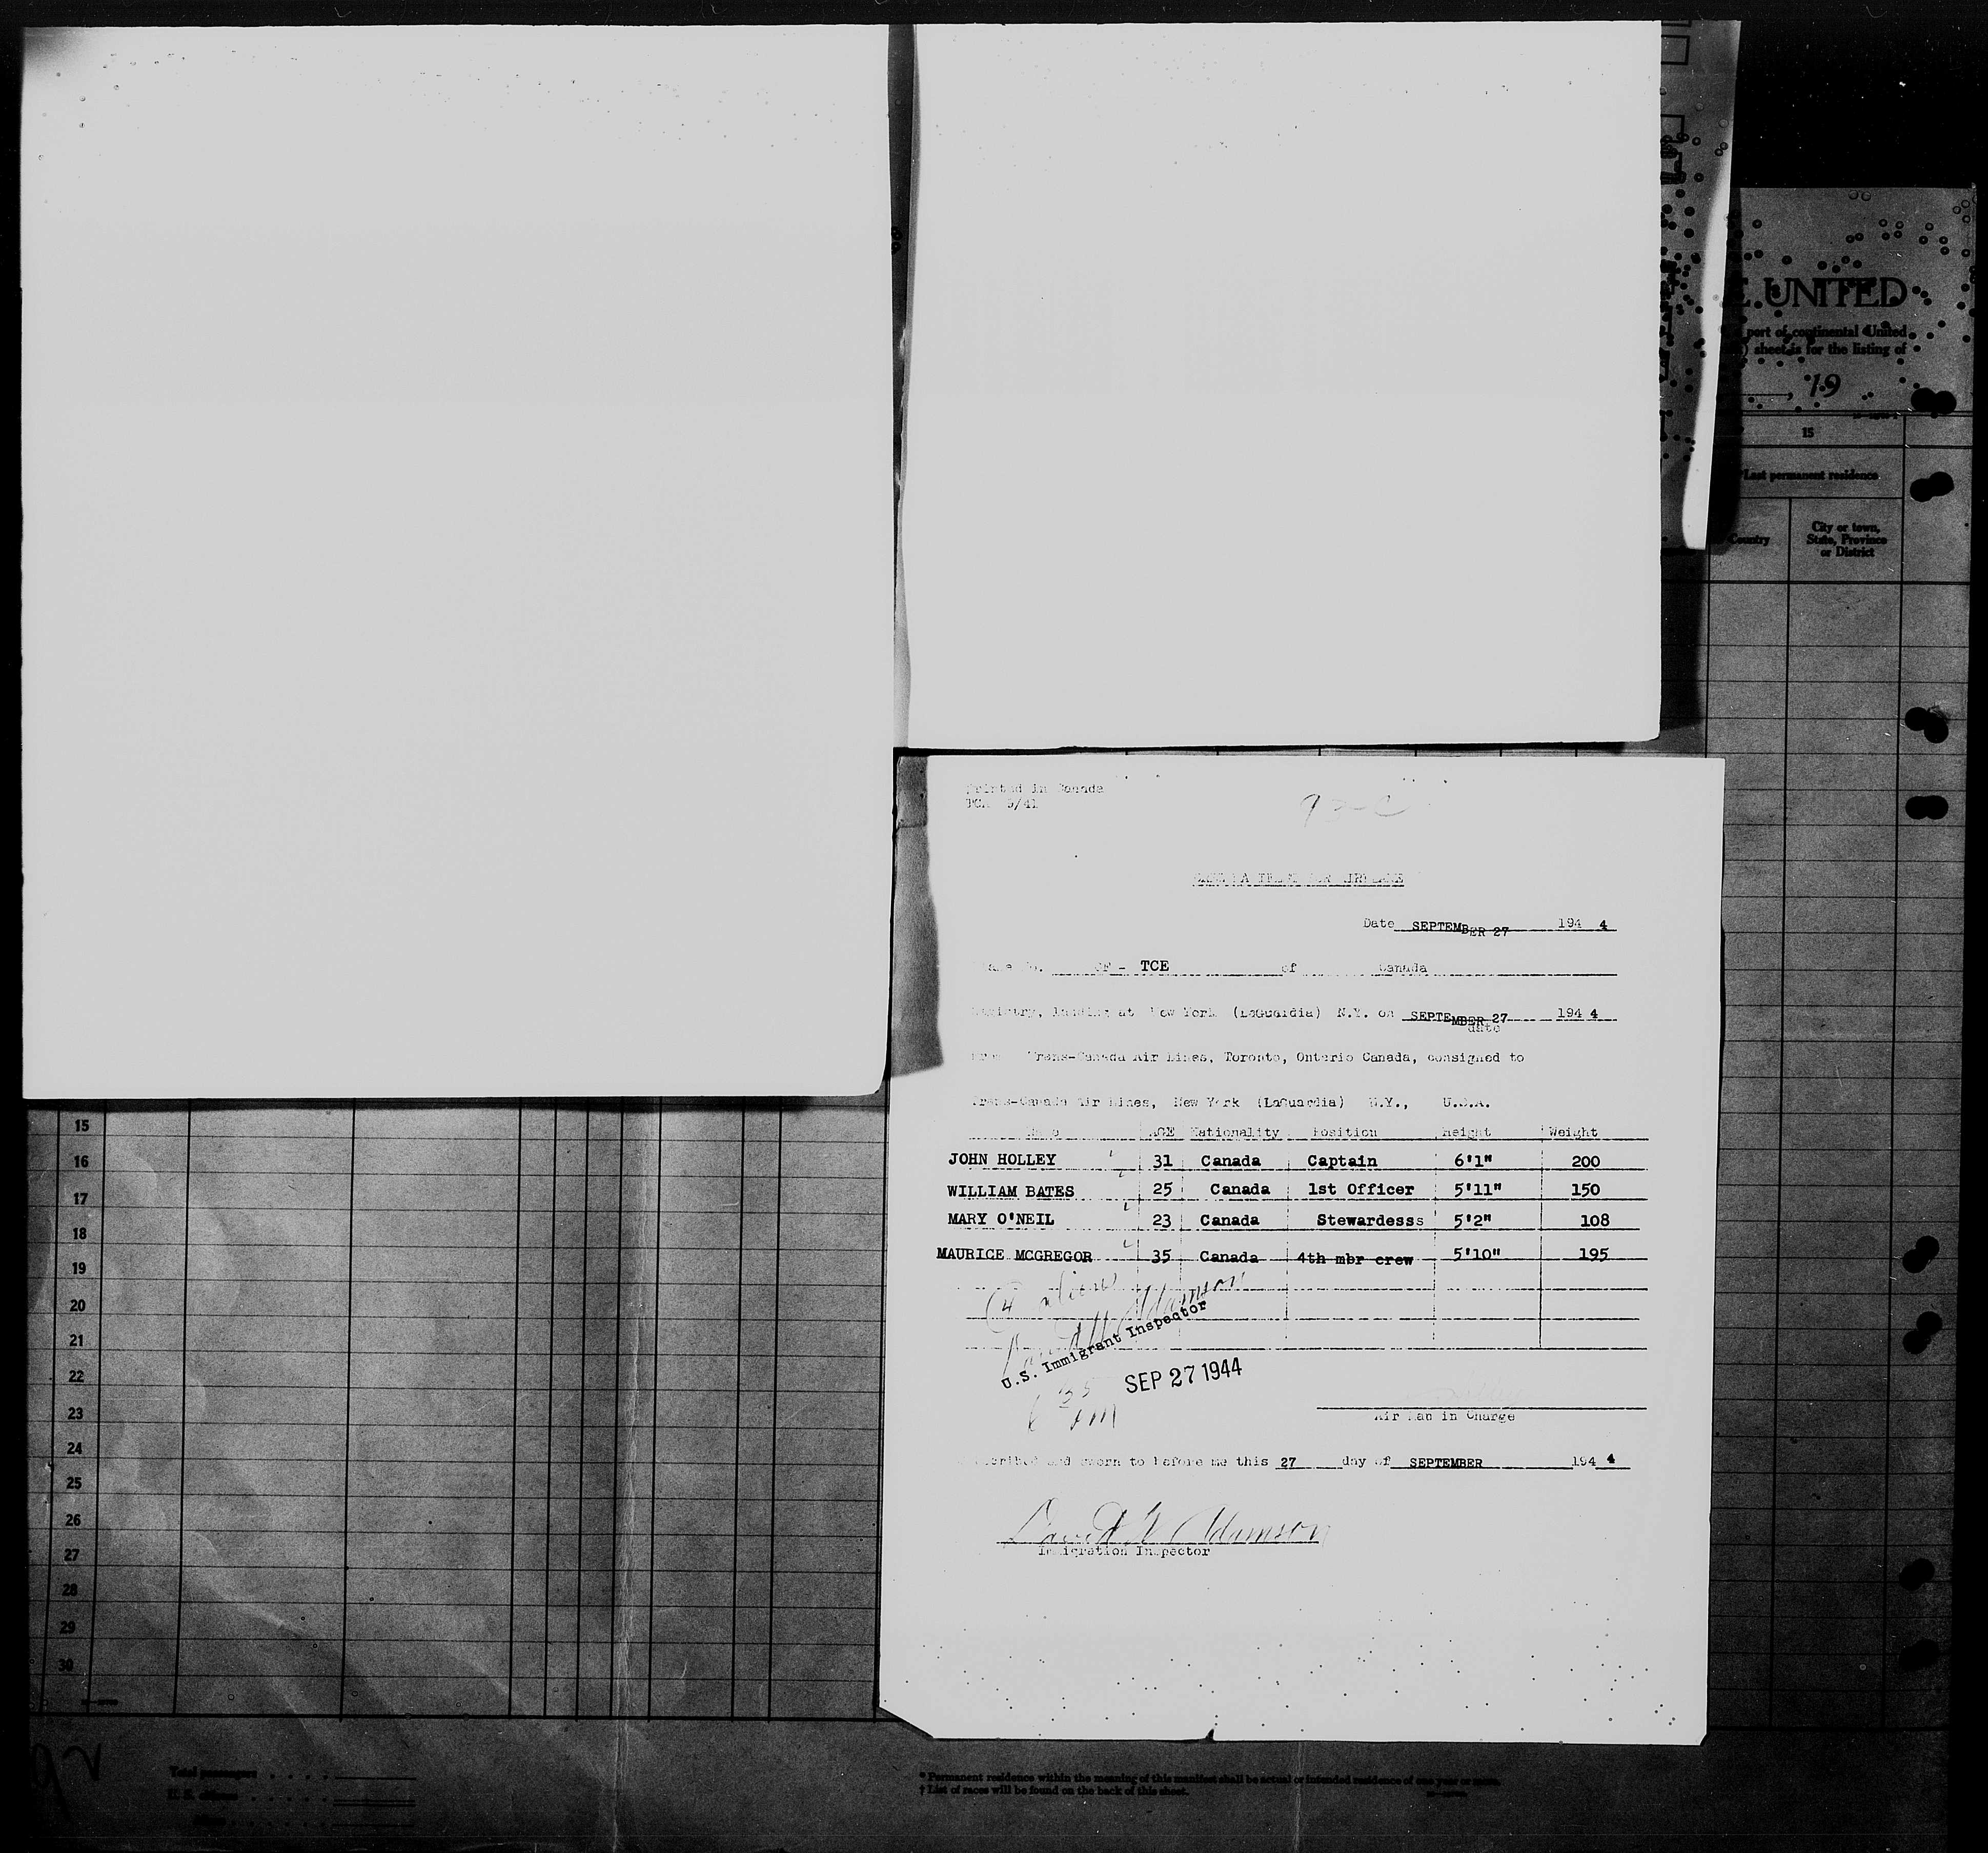 E UNITED
port of continental United
) sheet is for the listing of
, 19
15
Last permanent residence
Country
City or town,
State, Province
or District
Printed in Canada
TCA 5/41
93-C
AIRPLANE
Date SEPTEMBER 27 194 4
CF - TCE of Canada
Registry, landing at New York (LaGuardia) N.Y. on SEPTEMBER 27 194 4
date
From Trans-Canada Air Lines, Toronto, Ontario Canada, consigned to
Trans-Canada Air Lines, New York (LaGuardia) N.Y., U.S.A.
Name AGE Nationality Position Height Weight
JOHN HOLLEY 31 Canada Captain 6'1" 200
WILLIAM BATES 25 Canada 1st Officer 5'11" 150
MARY O'NEIL 23 Canada Stewardesss 5'2" 108
MAURICE MCGREGOR 35 Canada 4th mbr crew 5'10" 195
4 aliens
David W Adamson
U.S. Immigrant Inspector
SEP 27 1944
6 35
PM
Air Man in Charge
Subscribed and sworn to before me this 27 day of SEPTEMBER 194 4
David W Adamson
Immigration Inspector
15
16
17
18
19
20
21
22
23
24
25
26
27
28
29
30
92
Total passengers
U. S. citizens
* Permanent residence within the meaning of this manifest shall be actual or intended residence of one year or more.
† List of races will be found on the back of this sheet.